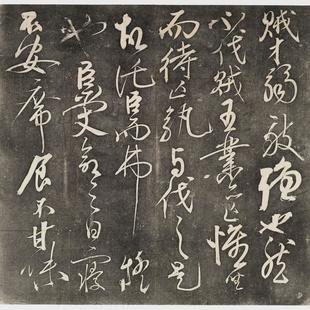 賊才弱敵強也然
不伐賊王業亦亡惟坐
而待亡孰與伐之是
故託臣而弗疑
也臣受命之日寢
不安席食不甘味